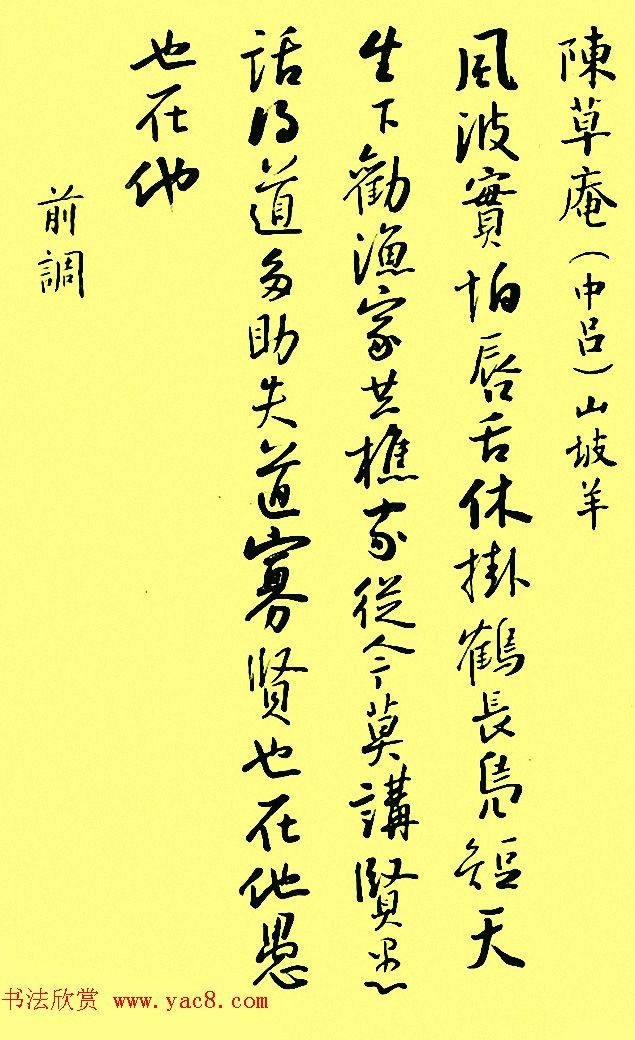 陳草庵（中呂）山坡羊
風波實怕唇舌休掛鶴長鳧短天
生下勸漁家共樵家從今莫講賢愚
話得道多助失道寡賢也在他愚
也在他
前調
书法欣赏 www.yac8.com